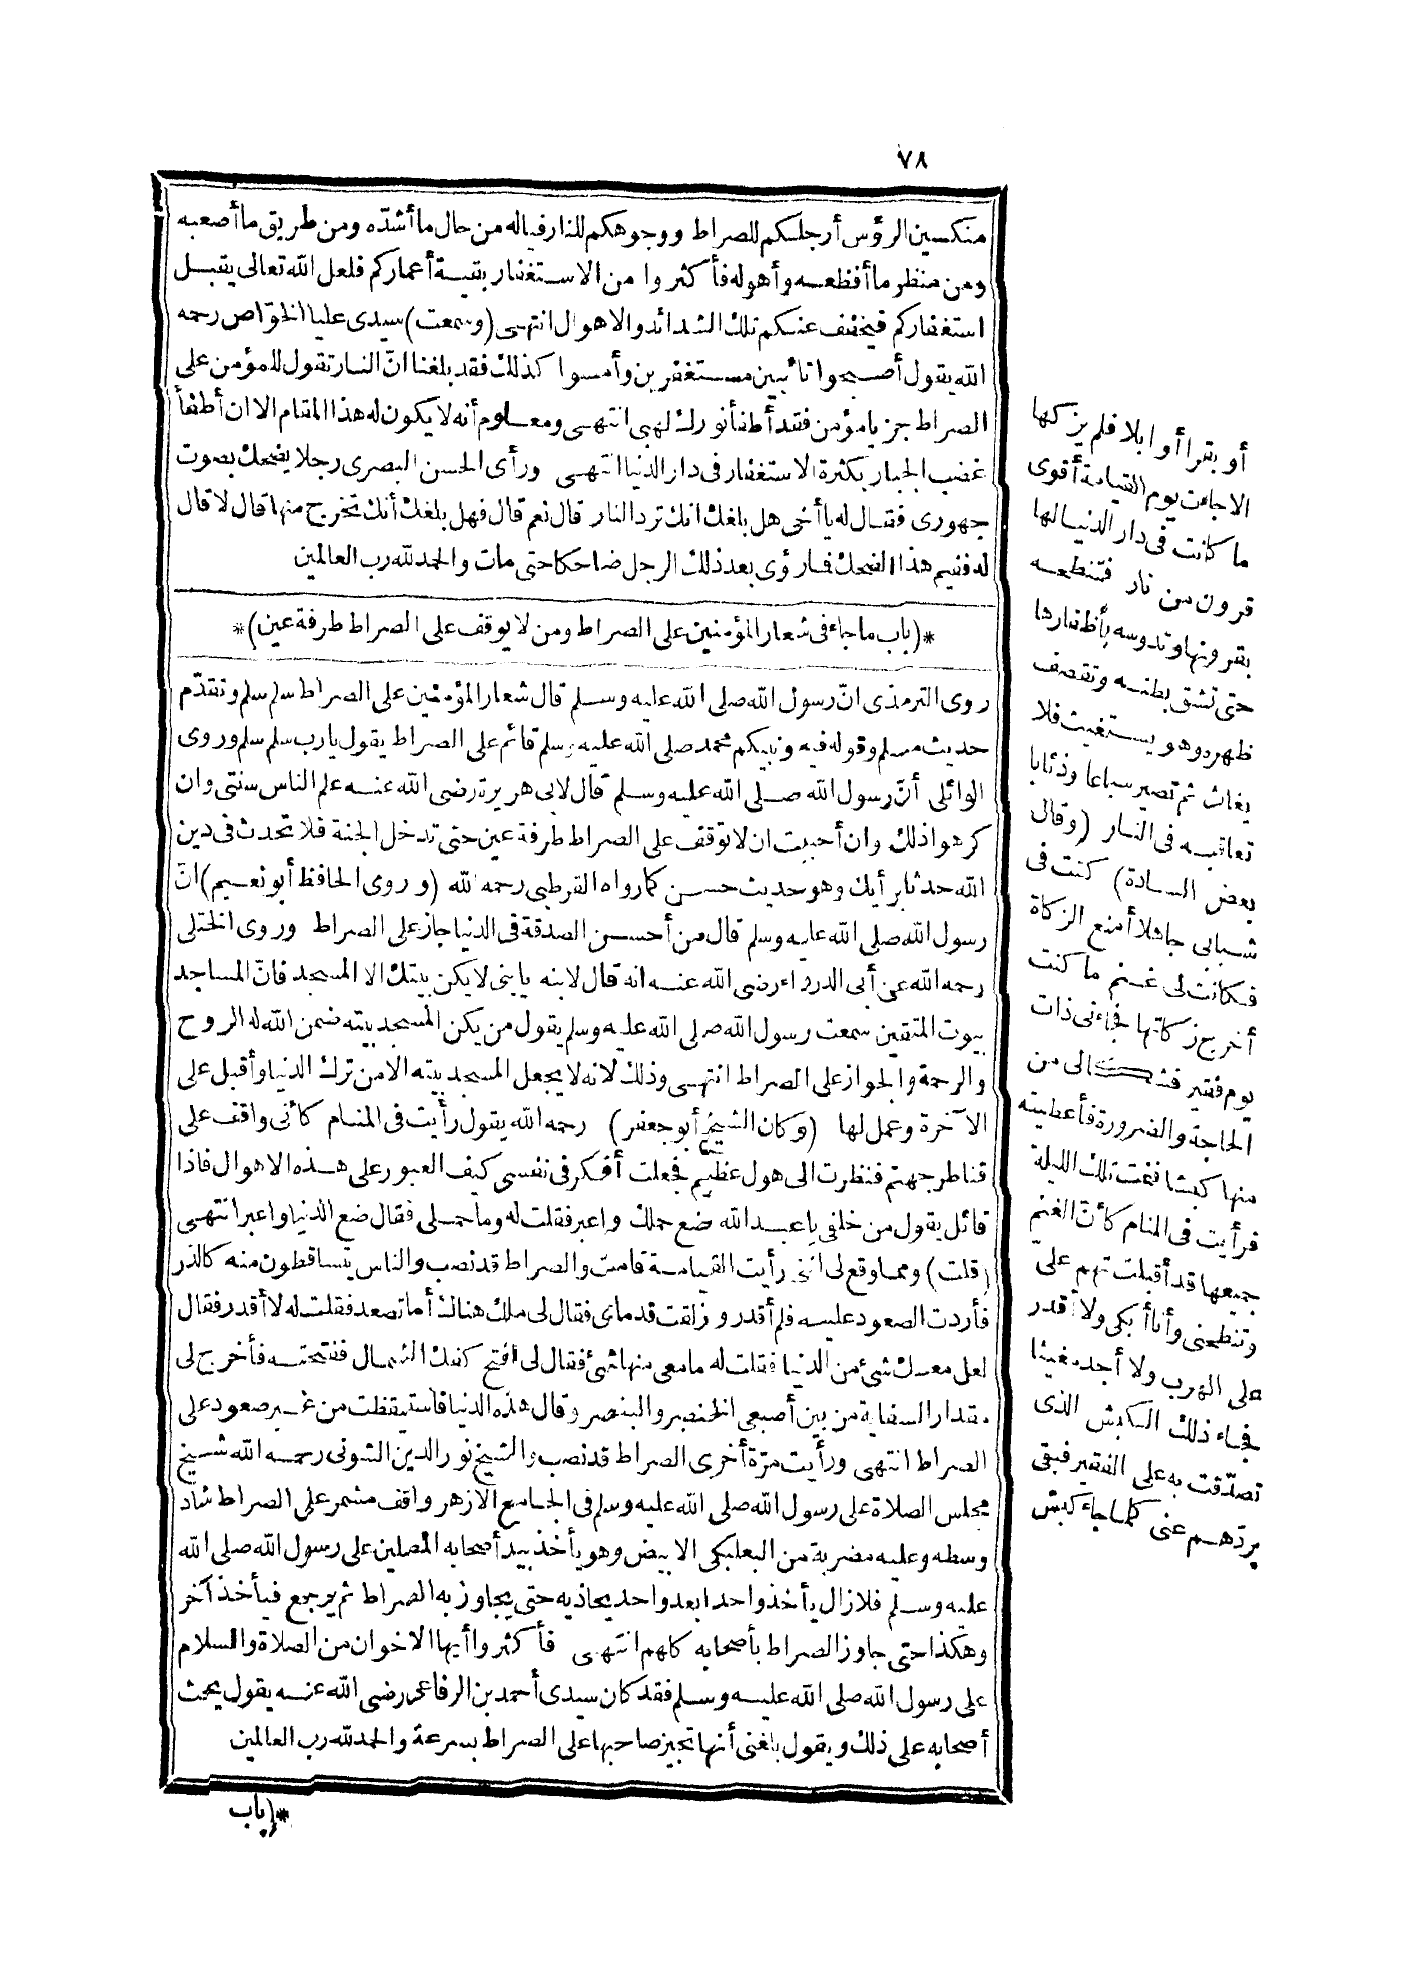 ٧٨
منكسين الرؤس أرجلكم للصراط ووجوهكم للنار فياله من حال ما أشدّه ومن طريق ما أصعبه
ومن منظر ما أفظعه وأهوله فأكثروا من الاستغفار بقية أعماركم فلعل الله تعالى يقبل
استغفاركم فيخفف عنكم تلك الشدائد والاهوال انتهى (وسمعت) سيدى عليا الخوّاص رحمه
الله يقول أصبحوا تائبين مستغفرين وأمسوا كذلك فقد بلغنا انّ النار تقول للمؤمن على
الصراط جز يا مؤمن فقد أطفأ نورك لهبى انتهى ومعلوم أنه لا يكون له هذا المقام الا ان أطفأ
غضب الجبار بكثرة الاستغفار فى دار الدنيا انتهى ورأى الحسن البصرى رجلا يضحك بصوت
جهورى فقال له يا أخى هل بلغك انك ترد النار قال نعم قال فهل بلغك أنك تخرج منها قال لا قال
له ففيم هذا الضحك فارؤى بعد ذلك الرجل ضاحكا حتى مات والحمد لله رب العالمين
*(باب ما جاء فى شعار المؤمنين على الصراط ومن لا يوقف على الصراط طرفة عين)*
روى الترمذى انّ رسول الله صلى الله عليه وسلم قال شعار المؤمنين على الصراط سلم سلم وتقدّم
حديث مسلم وقوله فيه ونبيكم محمد صلى الله عليه وسلم قائم على الصراط يقول يارب سلم سلم وروى
الوائلى أنّ رسول الله صلى الله عليه وسلم قال لابى هريرة رضى الله عنه علم الناس سنتى وان
كرهوا ذلك وان أحببت ان لا توقف على الصراط طرفة عين حتى تدخل الجنة فلا تحدث فى دين
الله حدثا برأيك وهو حديث حسن كما رواه القرطبى رحمه الله (وروى الحافظ أبو نعيم) انّ
رسول الله صلى الله عليه وسلم قال من أحسن الصدقة فى الدنيا جاز على الصراط وروى الختلى
رحمه الله عن أبى الدرداء رضى الله عنه انه قال لابنه يا بنى لا يكن بيتك الا المسجد فانّ المساجد
بيوت المتقين سمعت رسول الله صلى الله عليه وسلم يقول من يكن المسجد بيته ضمن الله له الروح
والرحمة والجواز على الصراط انتهى وذلك لانه لا يجعل المسجد بيته الا من ترك الدنيا وأقبل على
الآخرة وعمل لها (وكان الشيخ أبو جعفر) رحمه الله يقول رأيت فى المنام كأنى واقف على
قناطر جهنم فنظرت الى هول عظيم فجعلت أفكر فى نفسى كيف العبور على هذه الاهوال فاذا
قائل يقول من خلفى يا عبد الله ضع حملك واعبر فقلت له وما حملى فقال ضع الدنيا واعبر انتهى
(قلت) ومما وقع لى اننى رأيت القيامة قامت والصراط قد نصب والناس يتساقطون منه كالذر
فأردت الصعود عليه فلم أقدر وزلقت قدماى فقال لى ملك هناك أما تصعد فقلت له لا أقدر فقال
لعل معك شئ من الدنيا فقلت له ما معى منها شئ فقال لى افتح كفك الشمال ففتحته فأخرج لى
مقدار السفاية من بين أصبعى الخنصر والبنصر وقال هذه الدنيا فاستيقظت من غير صعود على
الصراط انتهى ورأيت مرّة أخرى الصراط قد نصب والشيخ نور الدين الشونى رحمه الله شيخ
مجلس الصلاة على رسول الله صلى الله عليه وسلم فى الجامع الازهر واقف مشمر على الصراط شاد
وسطه وعليه مضربة من البعلبكى الابيض وهو يأخذ بيد أصحابه المصلين على رسول الله صلى الله
عليه وسلم فلا زال يأخذ واحدا بعد واحد يحاذيه حتى يجاوز به الصراط ثم يرجع فيأخذ آخر
وهكذا حتى جاوز الصراط بأصحابه كلهم انتهى فأكثروا أيها الاخوان من الصلاة والسلام
على رسول الله صلى الله عليه وسلم فقد كان سيدى أحمد بن الرفاعى رضى الله عنه يقول يحث
أصحابه على ذلك ويقول بلغنى أنها تجيز صاحبها على الصراط بسرعة والحمد لله رب العالمين
*(باب
أو بقرا أو ابلا فلم يزكها
الا جاءت يوم القيامة أقوى
ما كانت فى دار الدنيا لها
قرون من نار فتنطحه
بقرونها وتدوسه بأظفارها
حتى تشق بطنه وتقصف
ظهره وهو يستغيث فلا
يغاث ثم تصير سباعا وذئابا
تعاقبه فى النار (وقال
بعض السادة) كنت فى
شبابى جاهلا أمنع الزكاة
فكانت لى غنم ما كنت
أخرج زكاتها فجاءنى ذات
يوم فقير فشكا الى من
الحاجة والضرورة فأعطيته
منها كبشا فنمت تلك الليلة
فرأيت فى المنام كأنّ الغنم
جميعها قد أقبلت تهم علىّ
وتنطحنى وأنا أبكى ولا أقدر
على الهرب ولا أجد مغيثا
فجاء ذلك الكبش الذى
تصدّقت به على الفقير فبقى
يردّهم عنى كلما جاء كبش